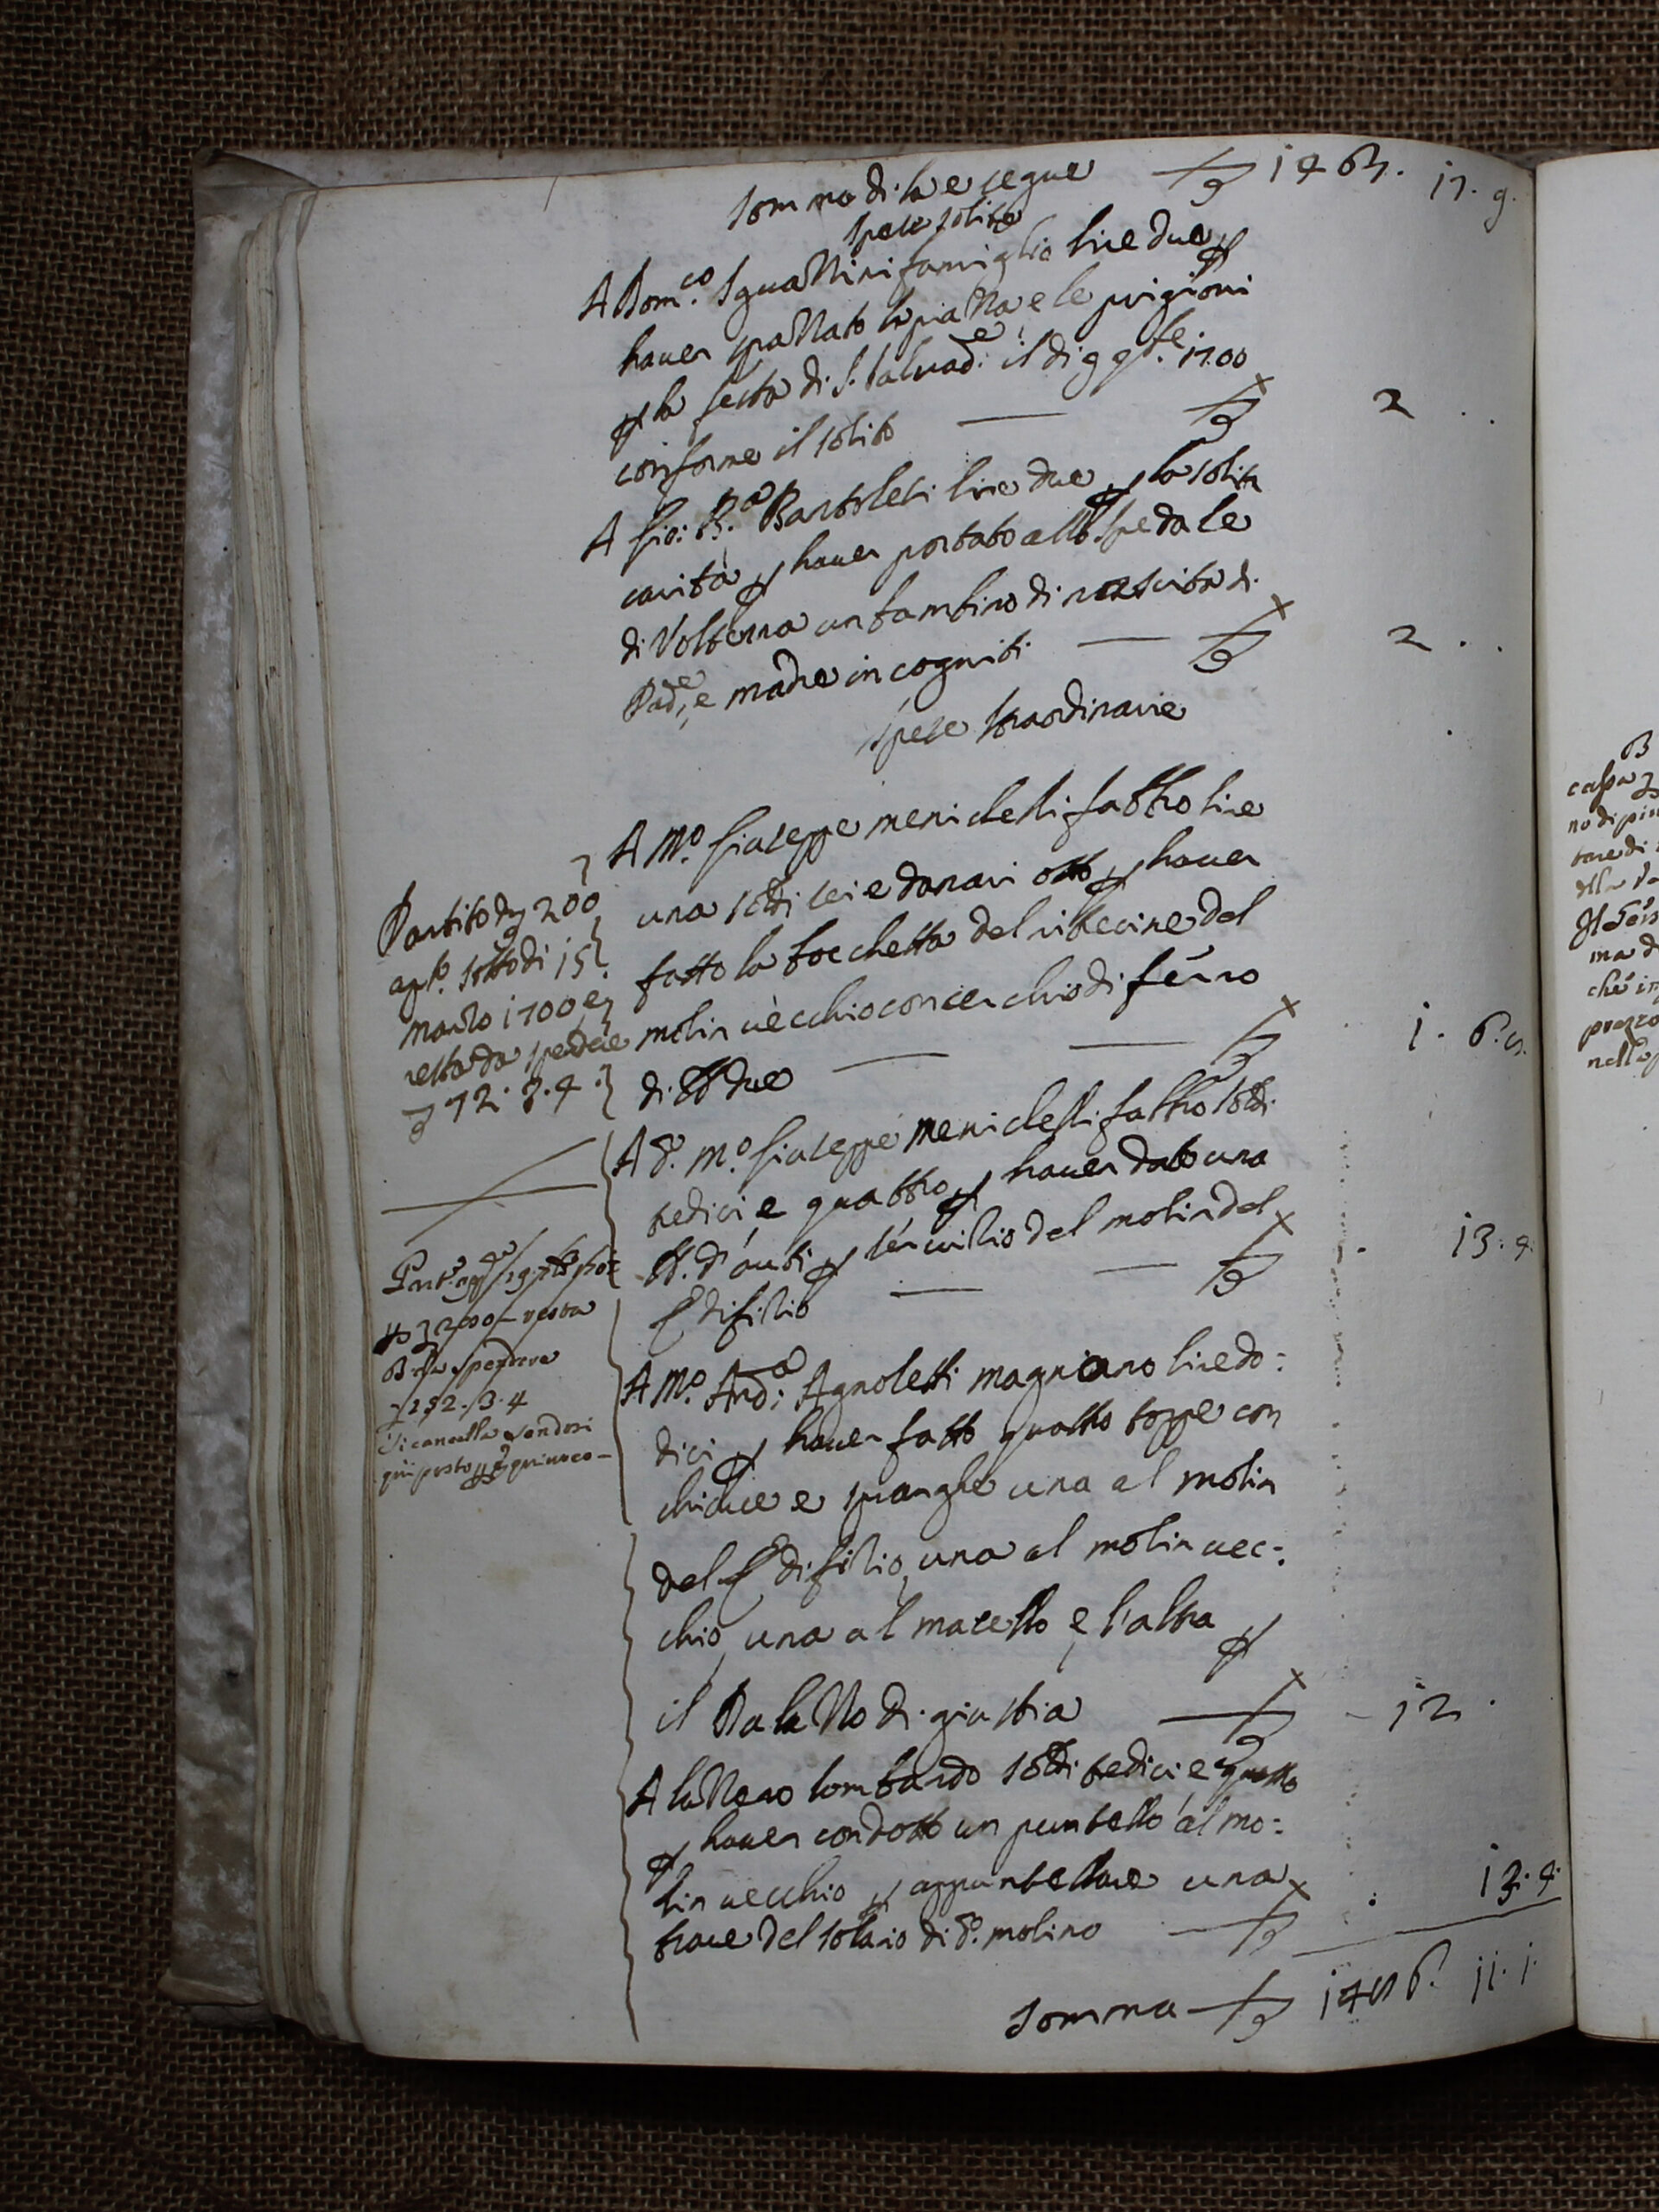 Somma di là e segue 1463. 17. 9.
Spese solite
A Dom.co Sguazzini famiglio lire due p
hauer spazzato la piazza, e le prigioni
p la festa di S. Saluad.e il di 9 9bre 1700
conforme il solito 2 . .
A Gio: B.a Bartoleti lire due p la solita
carità p hauer portato allo Spedale
di Volterra un bambino di nascita di
Pad.e, e madre incogniti 2 . .
Spese straordinarie
A M.o Giuseppe menichetti fabbro lire
una soldi sei e danari otto p hauer
fatto la bocchetta del ritrecine del
molin uecchio con cerchio di ferro
di lb due 1. 6. 8.
A d.o M.o Giuseppe Menichetti fabbro soldi
tredici e quattro p hauer dato una
lb. d'auti p seruitio del molin del
Edifitio 13. 4
A M.o And.a Agnoletti magnano lire do:
dici p hauer fatto quatto toppe con
chiaue e stanghe una al molin
del Edifitio, una al molin uec:
chio, una al macello e l'altra p
il Palazzo di giustitia 12 .
A lazzero lombardo soldi tredici, e quatto
p hauer condotto un puntello al mo:
lin uecchio p appuntellare una
traue del solaio di d.o molino 13. 4.
Somma 1486. 11. 1.
Partito di 200
ap.to sotto di 15
marzo 1700 e
resta da spendere
72. 3. 4
200 resta
da spendere
152. 13. 4
Si cancella sendosi
qui posto p equiuoco